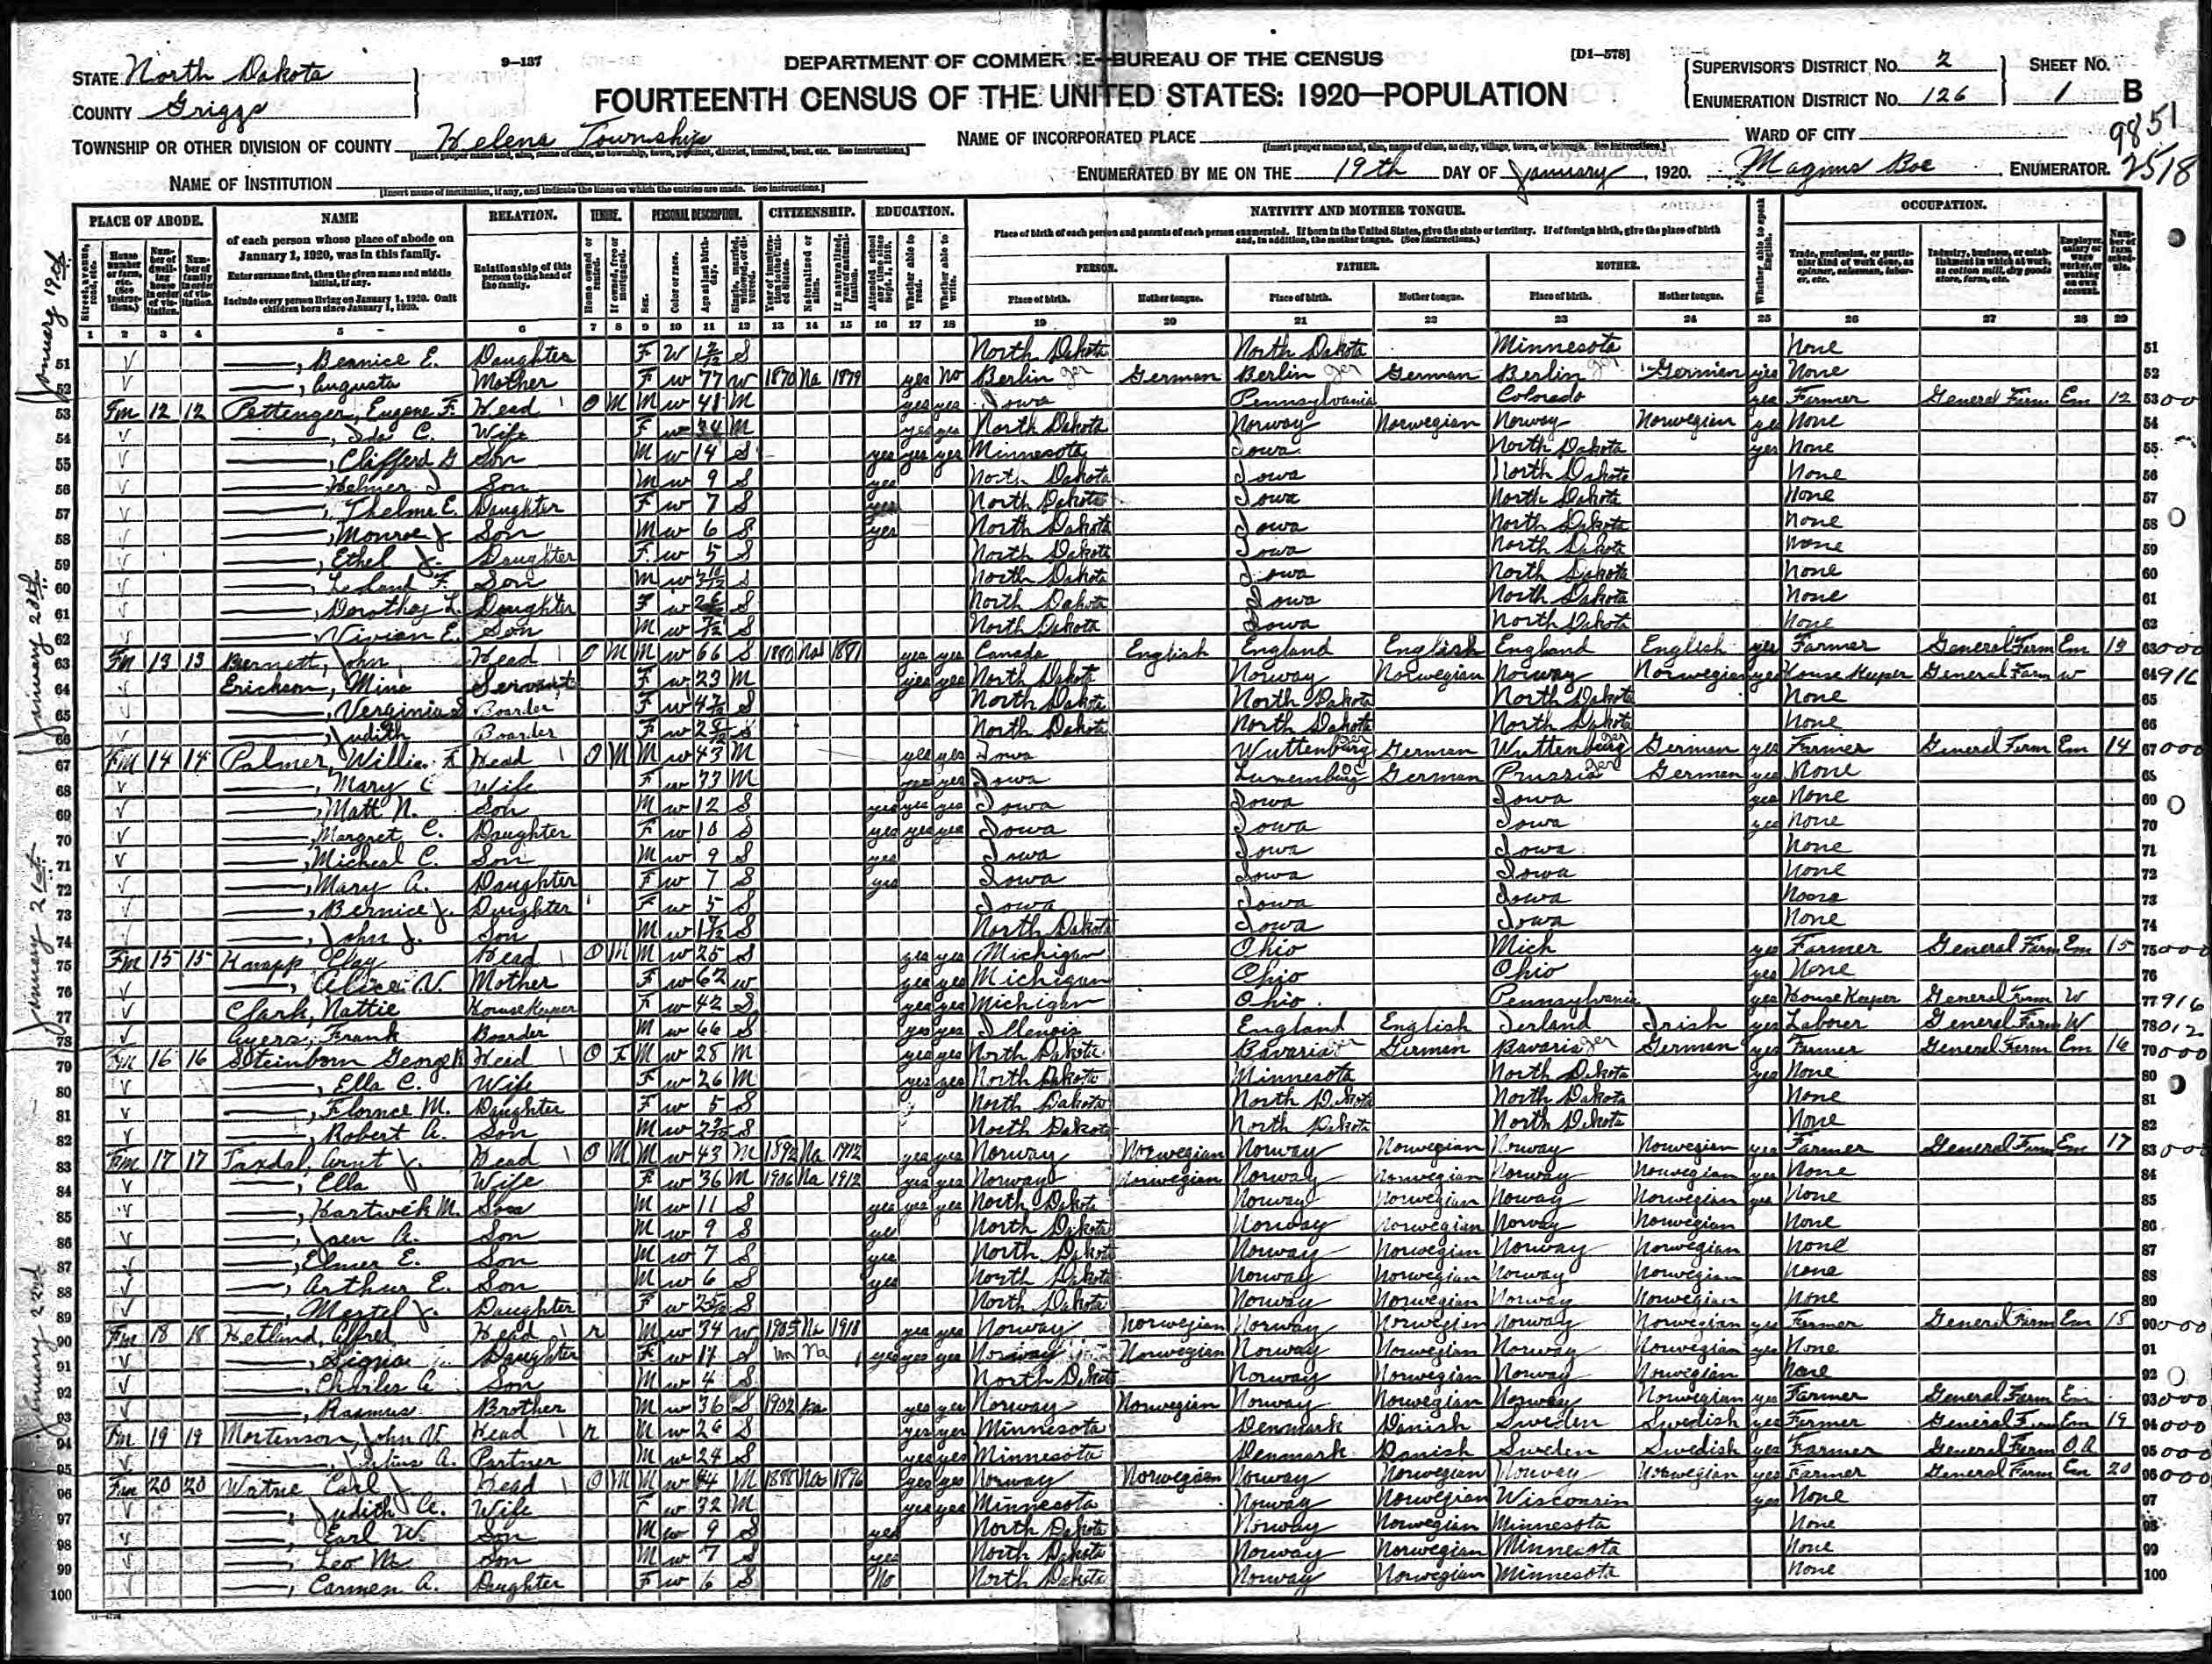 9—137
DEPARTMENT OF COMMERCE—BUREAU OF THE CENSUS
[D1—578]
STATE North Dakota
COUNTY Griggs
FOURTEENTH CENSUS OF THE UNITED STATES: 1920—POPULATION
SUPERVISOR'S DISTRICT No. 2
ENUMERATION DISTRICT No. 126
SHEET No. 1 B
9851
2518
TOWNSHIP OR OTHER DIVISION OF COUNTY Helena Township
NAME OF INCORPORATED PLACE
WARD OF CITY
NAME OF INSTITUTION
[Insert name of institution, if any, and indicate the lines on which the entries are made. See instructions.]
MyFamily.com
ENUMERATED BY ME ON THE 19th DAY OF January, 1920. Magnus Boe ENUMERATOR.
PLACE OF ABODE. NAME RELATION. TENURE. PERSONAL DESCRIPTION. CITIZENSHIP. EDUCATION. NATIVITY AND MOTHER TONGUE. OCCUPATION.
of each person whose place of abode on January 1, 1920, was in this family.
Enter surname first, then the given name and middle initial, if any.
Include every person living on January 1, 1920. Omit children born since January 1, 1920.
Relationship of this person to the head of the family.
Place of birth of each person and parents of each person enumerated. If born in the United States, give the state or territory. If of foreign birth, give the place of birth and, in addition, the mother tongue. (See instructions.)
PERSON. FATHER. MOTHER.
Place of birth. Mother tongue. Place of birth. Mother tongue. Place of birth. Mother tongue.
1 2 3 4 5 6 7 8 9 10 11 12 13 14 15 16 17 18 19 20 21 22 23 24 25 26 27 28 29
51 , Bernice E. Daughter F W S North Dakota North Dakota Minnesota None 51
52 , Augusta Mother F w 77 w 1870 Na 1879 yes No Berlin ger German Berlin ger German Berlin ger German yes None 52
53 Fm 12 12 Pettenger, Eugene F. Head O M M w 41 M yes yes Iowa Pennsylvania Colorado yes Farmer General Farm Em 12 53
54 , Ida C. Wife F w 34 M yes yes North Dakota Norway Norwegian Norway Norwegian yes None 54
55 , Clifferd G Son M w 14 S yes yes yes Minnesota Iowa North Dakota yes None 55
56 , Helmer Son M w 9 S yes North Dakota Iowa North Dakota None 56
57 , Thelma E. Daughter F w 7 S yes North Dakota Iowa North Dakota None 57
58 , Monroe J. Son M w 6 S yes North Dakota Iowa North Dakota None 58
59 , Ethel J. Daughter F w 5 S North Dakota Iowa North Dakota None 59
60 , Leland F. Son M w 3 10/12 S North Dakota Iowa North Dakota None 60
61 , Dorothy L. Daughter F w S North Dakota Iowa North Dakota None 61
62 , Vivian E. Son M w S North Dakota Iowa North Dakota None
63 Fm 13 13 Burnett, John Head O M M w 66 S 1880 Nat yes yes Canada English England English England English yes Farmer General Farm Em 13 63
64 Erickson, Mina Servant F w 23 M yes yes North Dakota Norway Norwegian Norway Norwegian yes House Keeper General Farm w 64 916
65 , Verginia Boarder F w North Dakota North Dakota North Dakota None 65
66 , Judith Boarder F w North Dakota North Dakota North Dakota None 66
67 Fm 14 14 Palmer, Willie F. Head O M M w 43 M yes yes Iowa Wuttenburg ger German Wuttenburg ger German yes Farmer General Farm Em 14 67 000
68 , Mary C Wife F w 33 M yes yes Iowa Luxemburg German Prussia ger German yes None
69 , Matt N. Son M w 12 S yes yes yes Iowa Iowa Iowa yes None 69
70 , Margret C. Daughter F w 10 S yes yes yes Iowa Iowa Iowa yes None 70
71 , Micheal C. Son M w 9 S yes Iowa Iowa Iowa None 71
72 , Mary A. Daughter F w 7 S yes Iowa Iowa Iowa None 72
73 , Bernice J. Daughter F w 5 S Iowa Iowa Iowa None 73
74 , John J. Son M w S North Dakota Iowa Iowa None 74
75 Fm 15 15 Knapp Clay Head O M M w 25 S yes yes Michigan Ohio Mich yes Farmer General Farm Em 15 75 000
76 , Alice V. Mother F w 62 w yes yes Michigan Ohio Ohio yes None 76
77 Clark, Nattie House Keeper F w 42 S yes yes Michigan Ohio Pennsylvania yes House Keeper General Farm W 77 916
78 Ayers, Frank Boarder M w 66 S yes yes Illenois England English Ierland Irish yes Laborer General Farm W 78 012
79 Fm 16 16 Steinborn George Head O F M w 28 M yes yes North Dakota Bavaria ger German Bavaria ger German yes Farmer General Farm Em 16 79 000
80 , Ella C. Wife F w 26 M yes yes North Dakota Minnesota North Dakota yes None 80
81 , Flornce M. Daughter F w 5 S North Dakota North Dakota North Dakota None 81
82 , Robert A. Son M w S North Dakota North Dakota North Dakota None 82
83 Fm 17 17 Taxdal, Arnt J. Head O M M w 43 M 1892 Na 1912 yes yes Norway Norwegian Norway Norwegian Norway Norwegian yes Farmer General Farm Em 17 83 000
84 , Ella Wife F w 36 M 1906 Na 1912 yes yes Norway Norwegian Norway Norwegian Norway Norwegian yes None 84
85 , Hartwik M. Son M w 11 S yes yes yes North Dakota Norway Norwegian Norway Norwegian yes None 85
86 A. Son M w 9 S yes North Dakota Norway Norwegian Norway Norwegian None 86
87 , Elmer E. Son M w 7 S yes North Dakota Norway Norwegian Norway Norwegian None 87
88 , Arthur E. Son M w 6 S yes North Dakota Norway Norwegian Norway Norwegian None 88
89 , Mertel J. Daughter F w S North Dakota Norway Norwegian Norway Norwegian None 89
90 Fm 18 18 Hetland, Alfred Head r M w 34 w 1905 Na yes yes Norway Norwegian Norway Norwegian Norway Norwegian yes Farmer General Farm Em 18 90 000
91 , Signa Daughter F w S Na yes yes yes Norway Norwegian Norway Norwegian Norway Norwegian yes None 91
92 , Charles A. Son M w 4 S North Dakota Norway Norwegian Norway Norwegian None 92
93 , Rasmus Brother M w 36 S 1902 yes yes Norway Norwegian Norway Norwegian Norway Norwegian yes Farmer General Farm Em 93 000
94 Fm 19 19 Mortenson, John V. Head r M w 26 S yes yes Minnesota Denmark Danish Sweden Swedish yes Farmer General Farm Em 19 94 000
95 A. Partner M w 24 S yes yes Minnesota Denmark Danish Sweden Swedish yes Farmer General Farm O A 95 000
96 Fm 20 20 Watne Carl J Head O M M w 44 M 1888 Na 1896 yes yes Norway Norwegian Norway Norwegian Norway Norwegian yes Farmer General Farm Em 20 96 000
97 , Judith C. Wife F w 32 M yes yes Minnesota Norway Norwegian Wisconsin yes None 97
98 , Earl W. Son M w 9 S yes North Dakota Norway Norwegian Minnesota None 98
99 , Leo M. Son M w 7 S yes North Dakota Norway Norwegian Minnesota None 99
100 , Carmen A. Daughter F w 6 S No North Dakota Norway Norwegian Minnesota None 100
January 19th
January 20th
January 21st
January 22nd